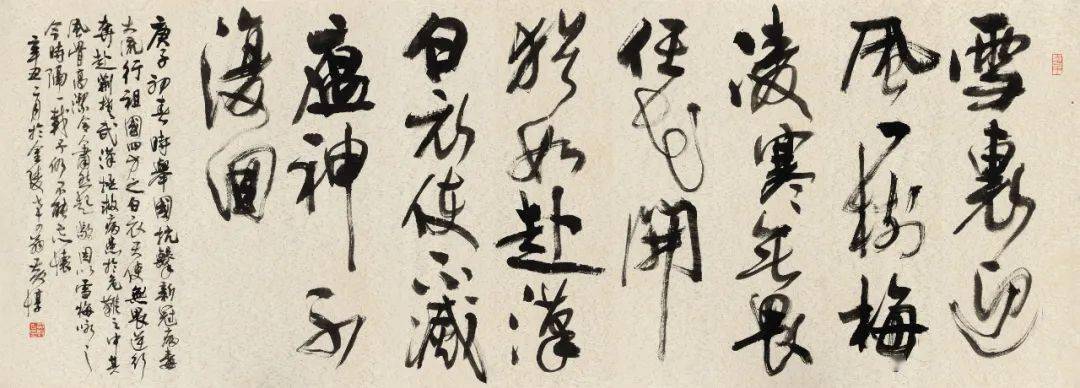 雪裏迎
風一樹梅
凌寒无畏
任花開
猶如赴漢
白衣使不滅
瘟神不
復回
庚子初春時舉國抗擊新冠病毒
大流行祖國四方之白衣天使無畏逆行
奔赴荊楚武漢拯救病患於危難之中其
風骨高潔令余肅然起敬因以雪梅咏之
今時隔一載予仍不能忘懷
辛丑二月於金陵 翁黃惇